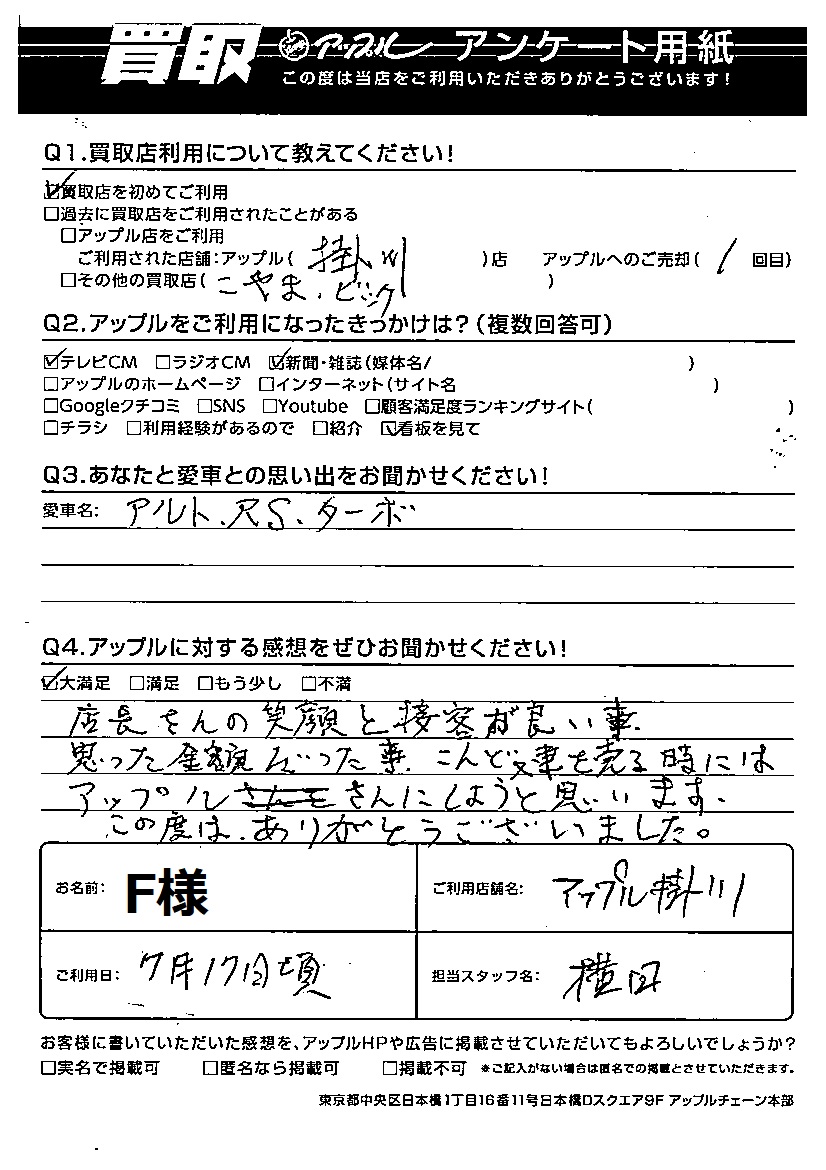 買取 アップル アンケート用紙
この度は当店をご利用いただきありがとうございます!
Q1.買取店利用について教えてください!
☑買取店を初めてご利用
□過去に買取店をご利用されたことがある
□アップル店をご利用
ご利用された店舗:アップル( 掛川 )店 アップルへのご売却( 1 回目)
□その他の買取店( こやま、ビック )
Q2.アップルをご利用になったきっかけは?(複数回答可)
☑テレビCM □ラジオCM ☑新聞・雑誌(媒体名/ )
□アップルのホームページ □インターネット(サイト名 )
□Googleクチコミ □SNS □Youtube □顧客満足度ランキングサイト( )
□チラシ □利用経験があるので □紹介 ☑看板を見て
Q3.あなたと愛車との思い出をお聞かせください!
愛車名: アルト、RS、ターボ
Q4.アップルに対する感想をぜひお聞かせください!
☑大満足 □満足 □もう少し □不満
店長さんの笑顔と接客が良い事、
思った金額だった事、こんど又車を売る時には
アップルさんにしようと思います、
この度は、ありがとうございました。
お名前: F様 ご利用店舗名: アップル掛川
ご利用日: 7月17日頃 担当スタッフ名: 横田
お客様に書いていただいた感想を、アップルHPや広告に掲載させていただいてもよろしいでしょうか?
□実名で掲載可 □匿名なら掲載可 □掲載不可 ※ご記入がない場合は匿名での掲載とさせていただきます。
東京都中央区日本橋1丁目16番11号日本橋Dスクエア9F アップルチェーン本部